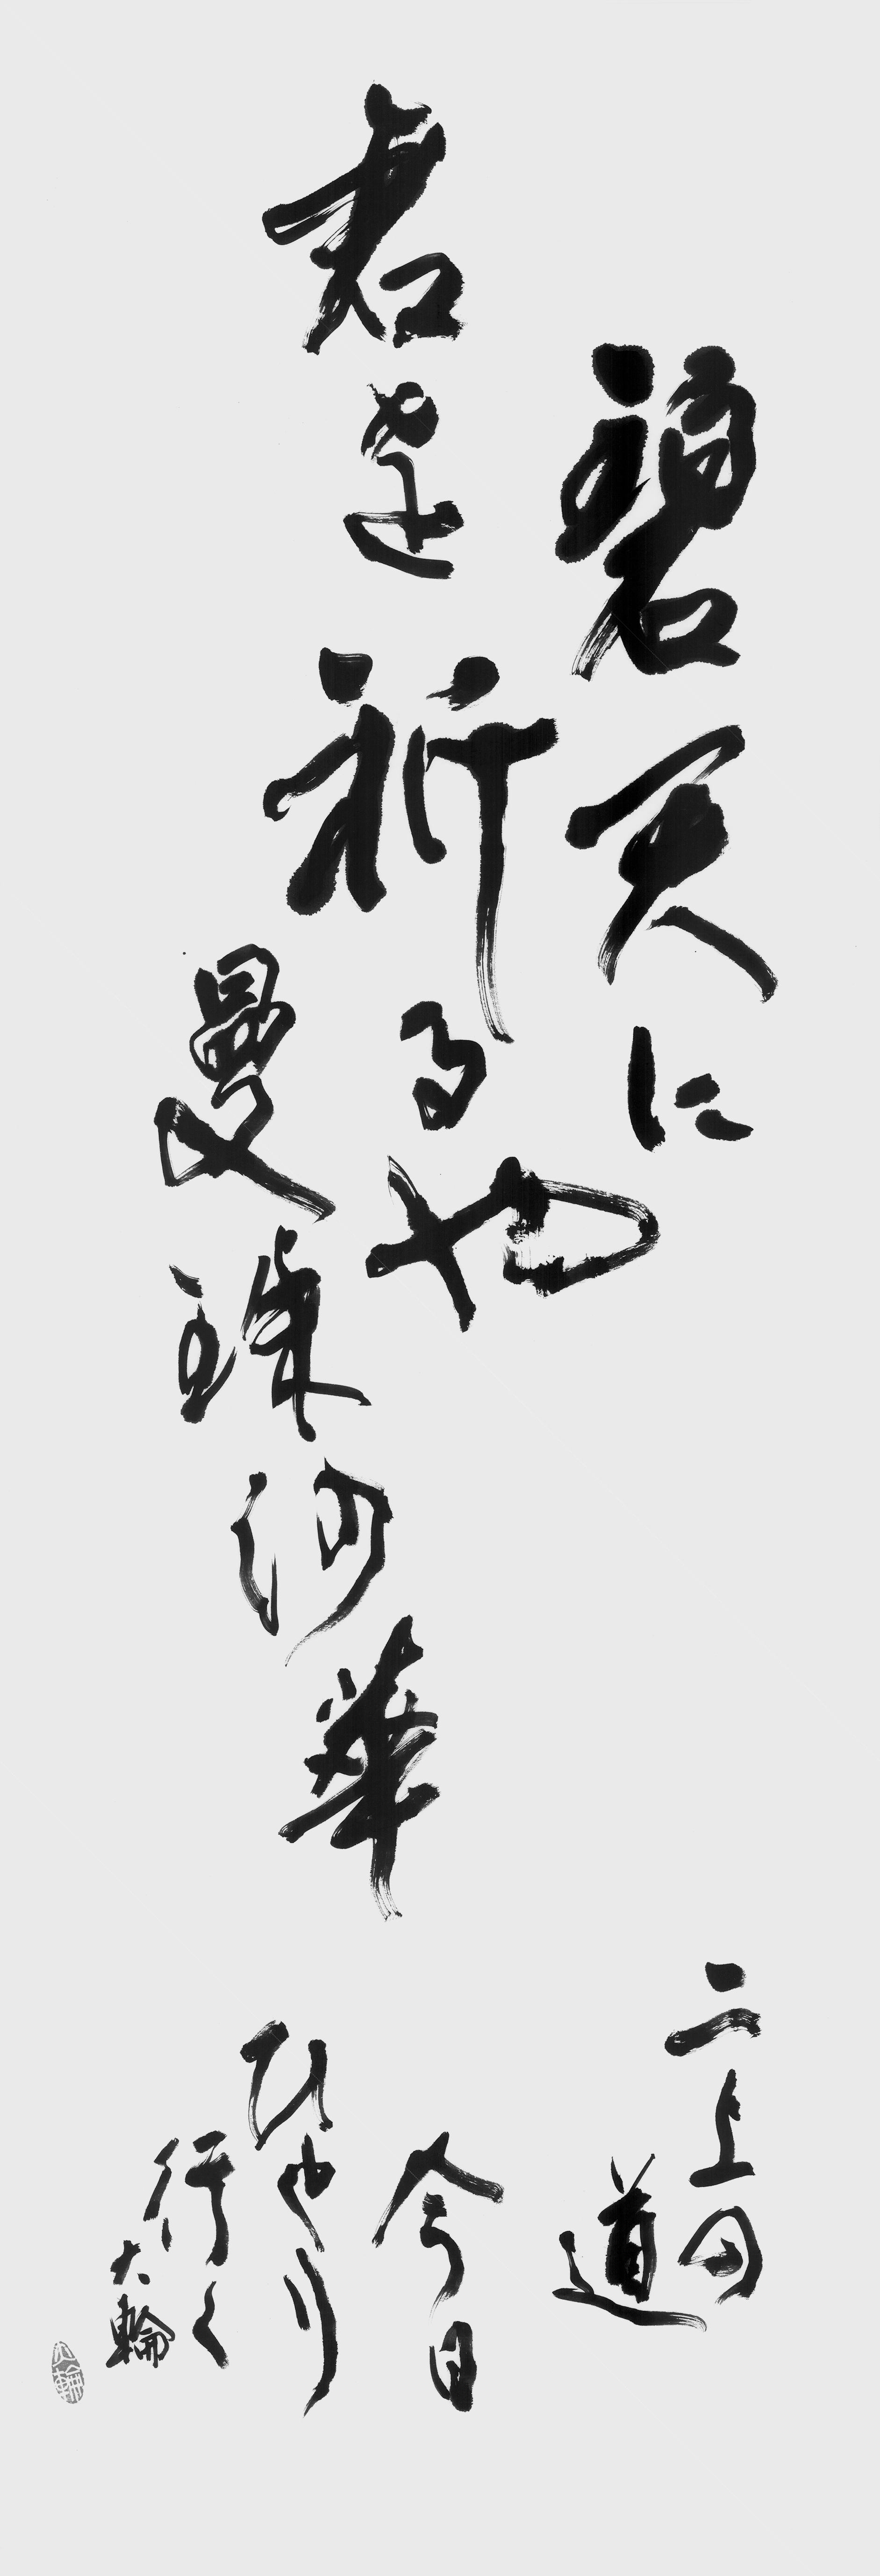 碧天に
君を祈るや
曼珠沙華
二上田
道
今日
ひやり
行く
大輪